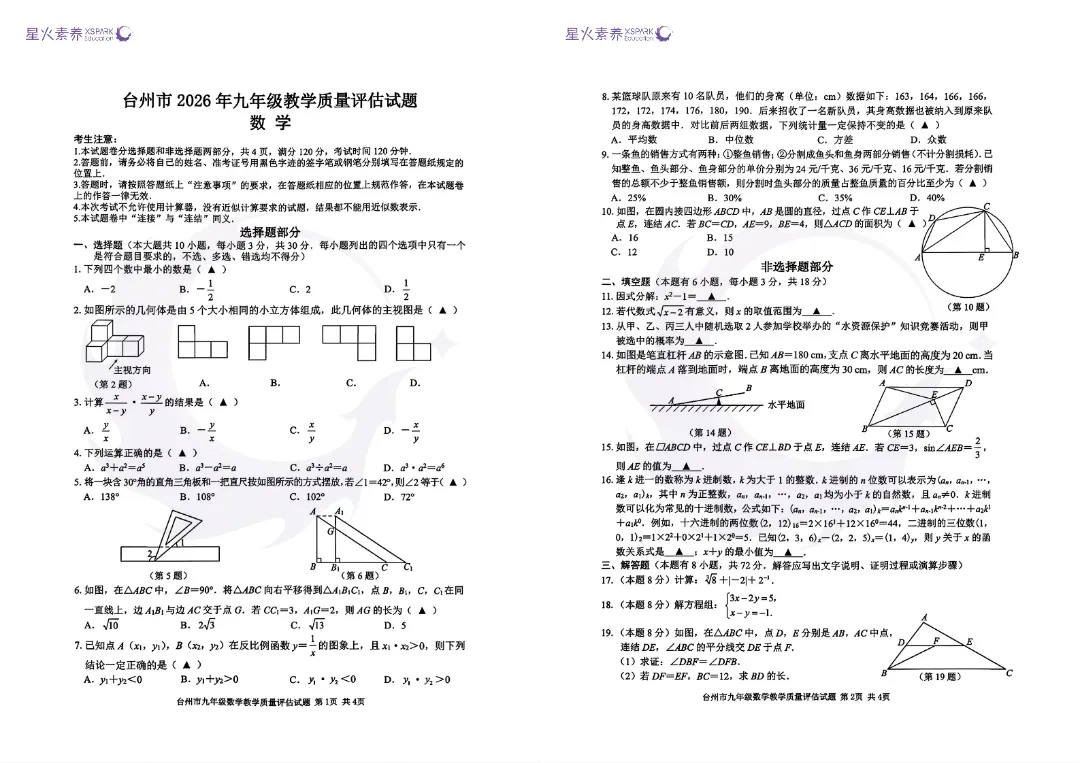 星火素养 XSPARK Education
台州市 2026 年九年级教学质量评估试题
数 学
考生注意：
1.本试题卷分选择题和非选择题两部分，共 4 页，满分 120 分，考试时间 120 分钟．
2.答题前，请务必将自己的姓名、准考证号用黑色字迹的签字笔或钢笔分别填写在答题纸规定的
位置上．
3.答题时，请按照答题纸上“注意事项”的要求，在答题纸相应的位置上规范作答，在本试题卷
上的作答一律无效．
4.本次考试不允许使用计算器，没有近似计算要求的试题，结果都不能用近似数表示．
5.本试题卷中“连接”与“连结”同义．
选择题部分
一、选择题（本大题共 10 小题，每小题 3 分，共 30 分．每小题列出的四个选项中只有一个
是符合题目要求的，不选、多选、错选均不得分）
1.下列四个数中最小的数是（ ▲ ）
A．-2 B．-1/2 C．2 D．1/2
2.如图所示的几何体是由 5 个大小相同的小立方体组成，此几何体的主视图是（ ▲ ）
主视方向
（第 2 题） A． B． C． D．
3.计算 x/(x-y) · (x-y)/y 的结果是（ ▲ ）
A．y/x B．-y/x C．x/y D．-x/y
4.下列运算正确的是（ ▲ ）
A．a³+a²=a⁵ B．a³-a²=a C．a³÷a²=a D．a³·a²=a⁶
5.将一块含 30°角的直角三角板和一把直尺按如图所示的方式摆放，若∠1=42°，则∠2 等于（ ▲ ）
A．138° B．108° C．102° D．72°
2 1
A A₁ G B B₁ C C₁
（第 5 题） （第 6 题）
6.如图，在△ABC 中，∠B=90°．将△ABC 向右平移得到△A₁B₁C₁，点 B，B₁，C，C₁在同
一直线上，边 A₁B₁与边 AC 交于点 G．若 CC₁=3，A₁G=2，则 AG 的长为（ ▲ ）
A．√10 B．2√3 C．√13 D．5
7.已知点 A（x₁，y₁），B（x₂，y₂）在反比例函数 y=1/x 的图象上，且 x₁·x₂>0，则下列
结论一定正确的是（ ▲ ）
A．y₁+y₂<0 B．y₁+y₂>0 C．y₁·y₂<0 D．y₁·y₂>0
台州市九年级数学教学质量评估试题 第 1页 共 4页
星火素养 XSPARK Education
8.某篮球队原来有 10 名队员，他们的身高（单位：cm）数据如下：163，164，166，166，
172，172，174，176，180，190．后来招收了一名新队员，其身高数据也被纳入到原来队
员的身高数据中．对比前后两组数据，下列统计量一定保持不变的是（ ▲ ）
A．平均数 B．中位数 C．方差 D．众数
9.一条鱼的销售方式有两种：①整鱼销售；②分割成鱼头和鱼身两部分销售（不计分割损耗）．已
知整鱼、鱼头部分、鱼身部分的单价分别为 24 元/千克、36 元/千克、16 元/千克．若分割销
售的总额不少于整鱼销售额，则分割时鱼头部分的质量占整鱼质量的百分比至少为（ ▲ ）
A．25% B．30% C．35% D．40%
10.如图，在圆内接四边形 ABCD 中，AB 是圆的直径，过点 C 作 CE⊥AB 于
点 E，连结 AC．若 BC=CD，AE=9，BE=4，则△ACD 的面积为（ ▲ ）
A．16 B．15
C．12 D．10
D C A E B
（第 10 题）
非选择题部分
二、填空题（本题有 6 小题，每小题 3 分，共 18 分）
11.因式分解：x²-1= ▲ ．
12.若代数式√(x-2)有意义，则 x 的取值范围为 ▲ ．
13.从甲、乙、丙三人中随机选取 2 人参加学校举办的“水资源保护”知识竞赛活动，则甲
被选中的概率为 ▲ ．
14.如图是笔直杠杆 AB 的示意图．已知 AB=180 cm，支点 C 离水平地面的高度为 20 cm．当
杠杆的端点 A 落到地面时，端点 B 离地面的高度为 30 cm，则 AC 的长度为 ▲ cm．
A C B 水平地面
A D E B C
（第 14 题） （第 15 题）
15.如图，在▱ABCD 中，过点 C 作 CE⊥BD 于点 E，连结 AE．若 CE=3，sin∠AEB=2/3，
则 AE 的值为 ▲ ．
16.逢 k 进一的数称为 k 进制数，k 为大于 1 的整数．k 进制的 n 位数可以表示为(aₙ，aₙ₋₁，…，
a₂，a₁)ₖ，其中 n 为正整数，aₙ，aₙ₋₁，…，a₂，a₁ 均为小于 k 的自然数，且 aₙ≠0．k 进制
数可以化为常见的十进制数，公式如下：(aₙ，aₙ₋₁，…，a₂，a₁)ₖ=aₙkⁿ⁻¹+aₙ₋₁kⁿ⁻²+…+a₂k¹
+a₁k⁰．例如，十六进制的两位数(2，12)₁₆=2×16¹+12×16⁰=44，二进制的三位数(1，
0，1)₂=1×2²+0×2¹+1×2⁰=5．已知(2，3，6)ₓ-(2，2，5)ₓ=(1，4)ᵧ，则 y 关于 x 的函
数关系式是 ▲ ；x+y 的最小值为 ▲ ．
三、解答题（本题有 8 小题，共 72 分．解答应写出文字说明、证明过程或演算步骤）
17.（本题 8 分）计算：∛8+|-2|+2⁻¹．
18.（本题 8 分）解方程组：{3x-2y=5，
x-y=-1．
19.（本题 8 分）如图，在△ABC 中，点 D，E 分别是 AB，AC 中点，
连结 DE，∠ABC 的平分线交 DE 于点 F．
（1）求证：∠DBF=∠DFB．
（2）若 DF=EF，BC=12，求 BD 的长．
A D F E B C
（第 19 题）
台州市九年级数学教学质量评估试题 第 2页 共 4页